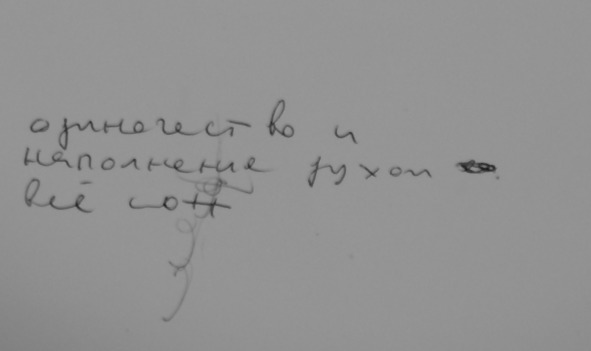 одиночество и
наполнение духом
всё